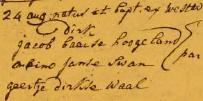 24 aug natus et bapt ex westen
dirk
jacob baarse hoogeland
albino janse swan par
geertje dirkse waal